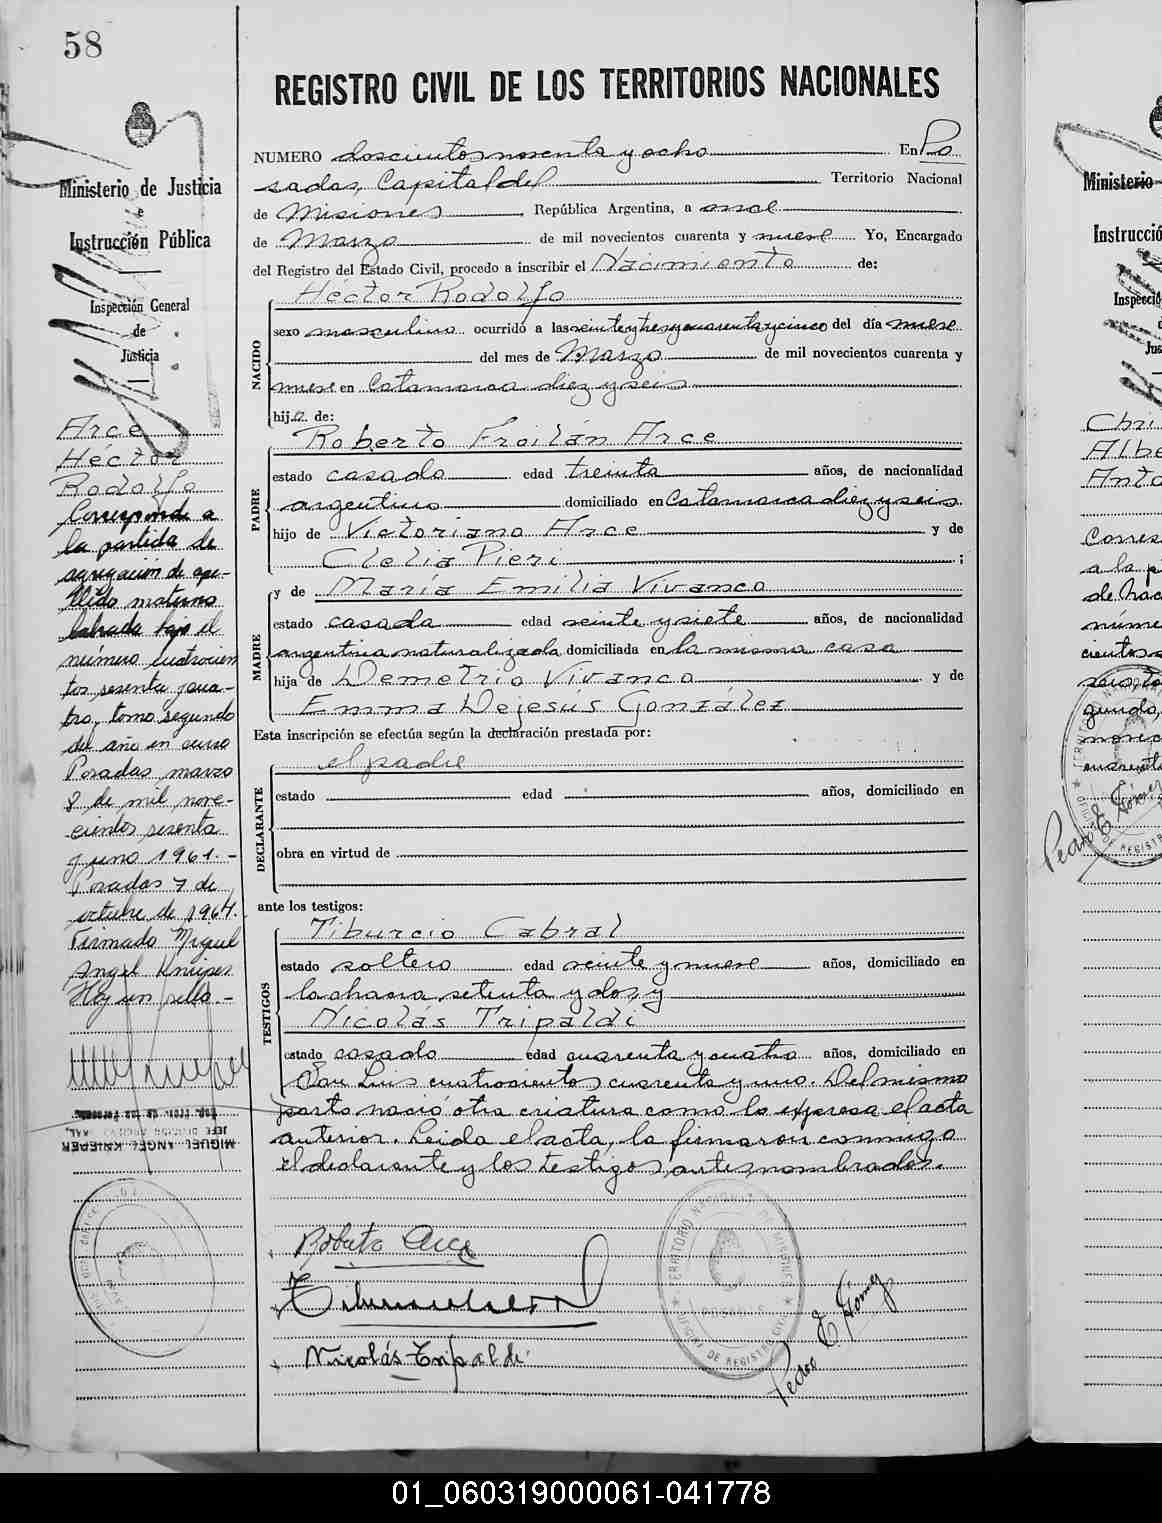 58
REGISTRO CIVIL DE LOS TERRITORIOS NACIONALES
Ministerio de Justicia
e
Instrucción Pública
Inspección General
de
Justicia
Arce
Héctor
Rodolfo
Corresponde a
la partida de
agregación de ape-
llido materno
labrada bajo el
número cuatrocien
tos sesenta y cua-
tro, tomo segundo
del año en curso
Posadas, marzo
8 de mil nove-
cientos sesenta
y uno 1961.-
Posadas 7 de
octubre de 1964.
Firmado Miguel
Angel Knieper
Hay un sello.-
MIGUEL ANGEL KNIEPER
NUMERO doscientos noventa y ocho En Po
sadas, Capital del Territorio Nacional
de Misiones, República Argentina, a once
de Marzo de mil novecientos cuarenta y nueve Yo, Encargado
del Registro del Estado Civil, procedo a inscribir el Nacimiento de:
NACIDO
Héctor Rodolfo
sexo masculino ocurrido a las veinte y tres y cuarenta y cinco del día nueve
del mes de Marzo de mil novecientos cuarenta y
nueve en Catamarca diez y seis
hijo de:
PADRE
Roberto Froilán Arce
estado casado edad treinta años, de nacionalidad
argentino domiciliado en Catamarca diez y seis
hijo de Victoriano Arce y de
Clelia Pieri ;
MADRE
y de María Emilia Vivanco
estado casada edad veinte y siete años, de nacionalidad
argentina naturalizada domiciliada en la misma casa
hija de Demetrio Vivanco y de
Emma Dejesús González
Esta inscripción se efectúa según la declaración prestada por:
DECLARANTE
el padre
estado edad años, domiciliado en
obra en virtud de
ante los testigos:
TESTIGOS
Tiburcio Cabral
estado soltero edad veinte y nueve años, domiciliado en
la chacra setenta y dos, y
Nicolás Tripaldi
estado casado edad cuarenta y cuatro años, domiciliado en
San Luis cuatrocientos cuarenta y uno. Del mismo
parto nació otra criatura como lo expresa el acta
anterior. Leida el acta, la firmaron conmigo
el declarante y los testigos antes nombrados.
Roberto Arce
Nicolás Tripaldi
TERRITORIO NACIONAL DE MISIONES
POSADAS
OFICINA DE REGISTRO CIVIL
Pedro E Gómez
Ministerio
Instrucció
Inspecció
Jus
Chri
Albe
Anto
Corres
a la p
de nac
núme
cientos
gundo,
novec
cuarenta
Pedro E Gómez
01_060319000061-041778